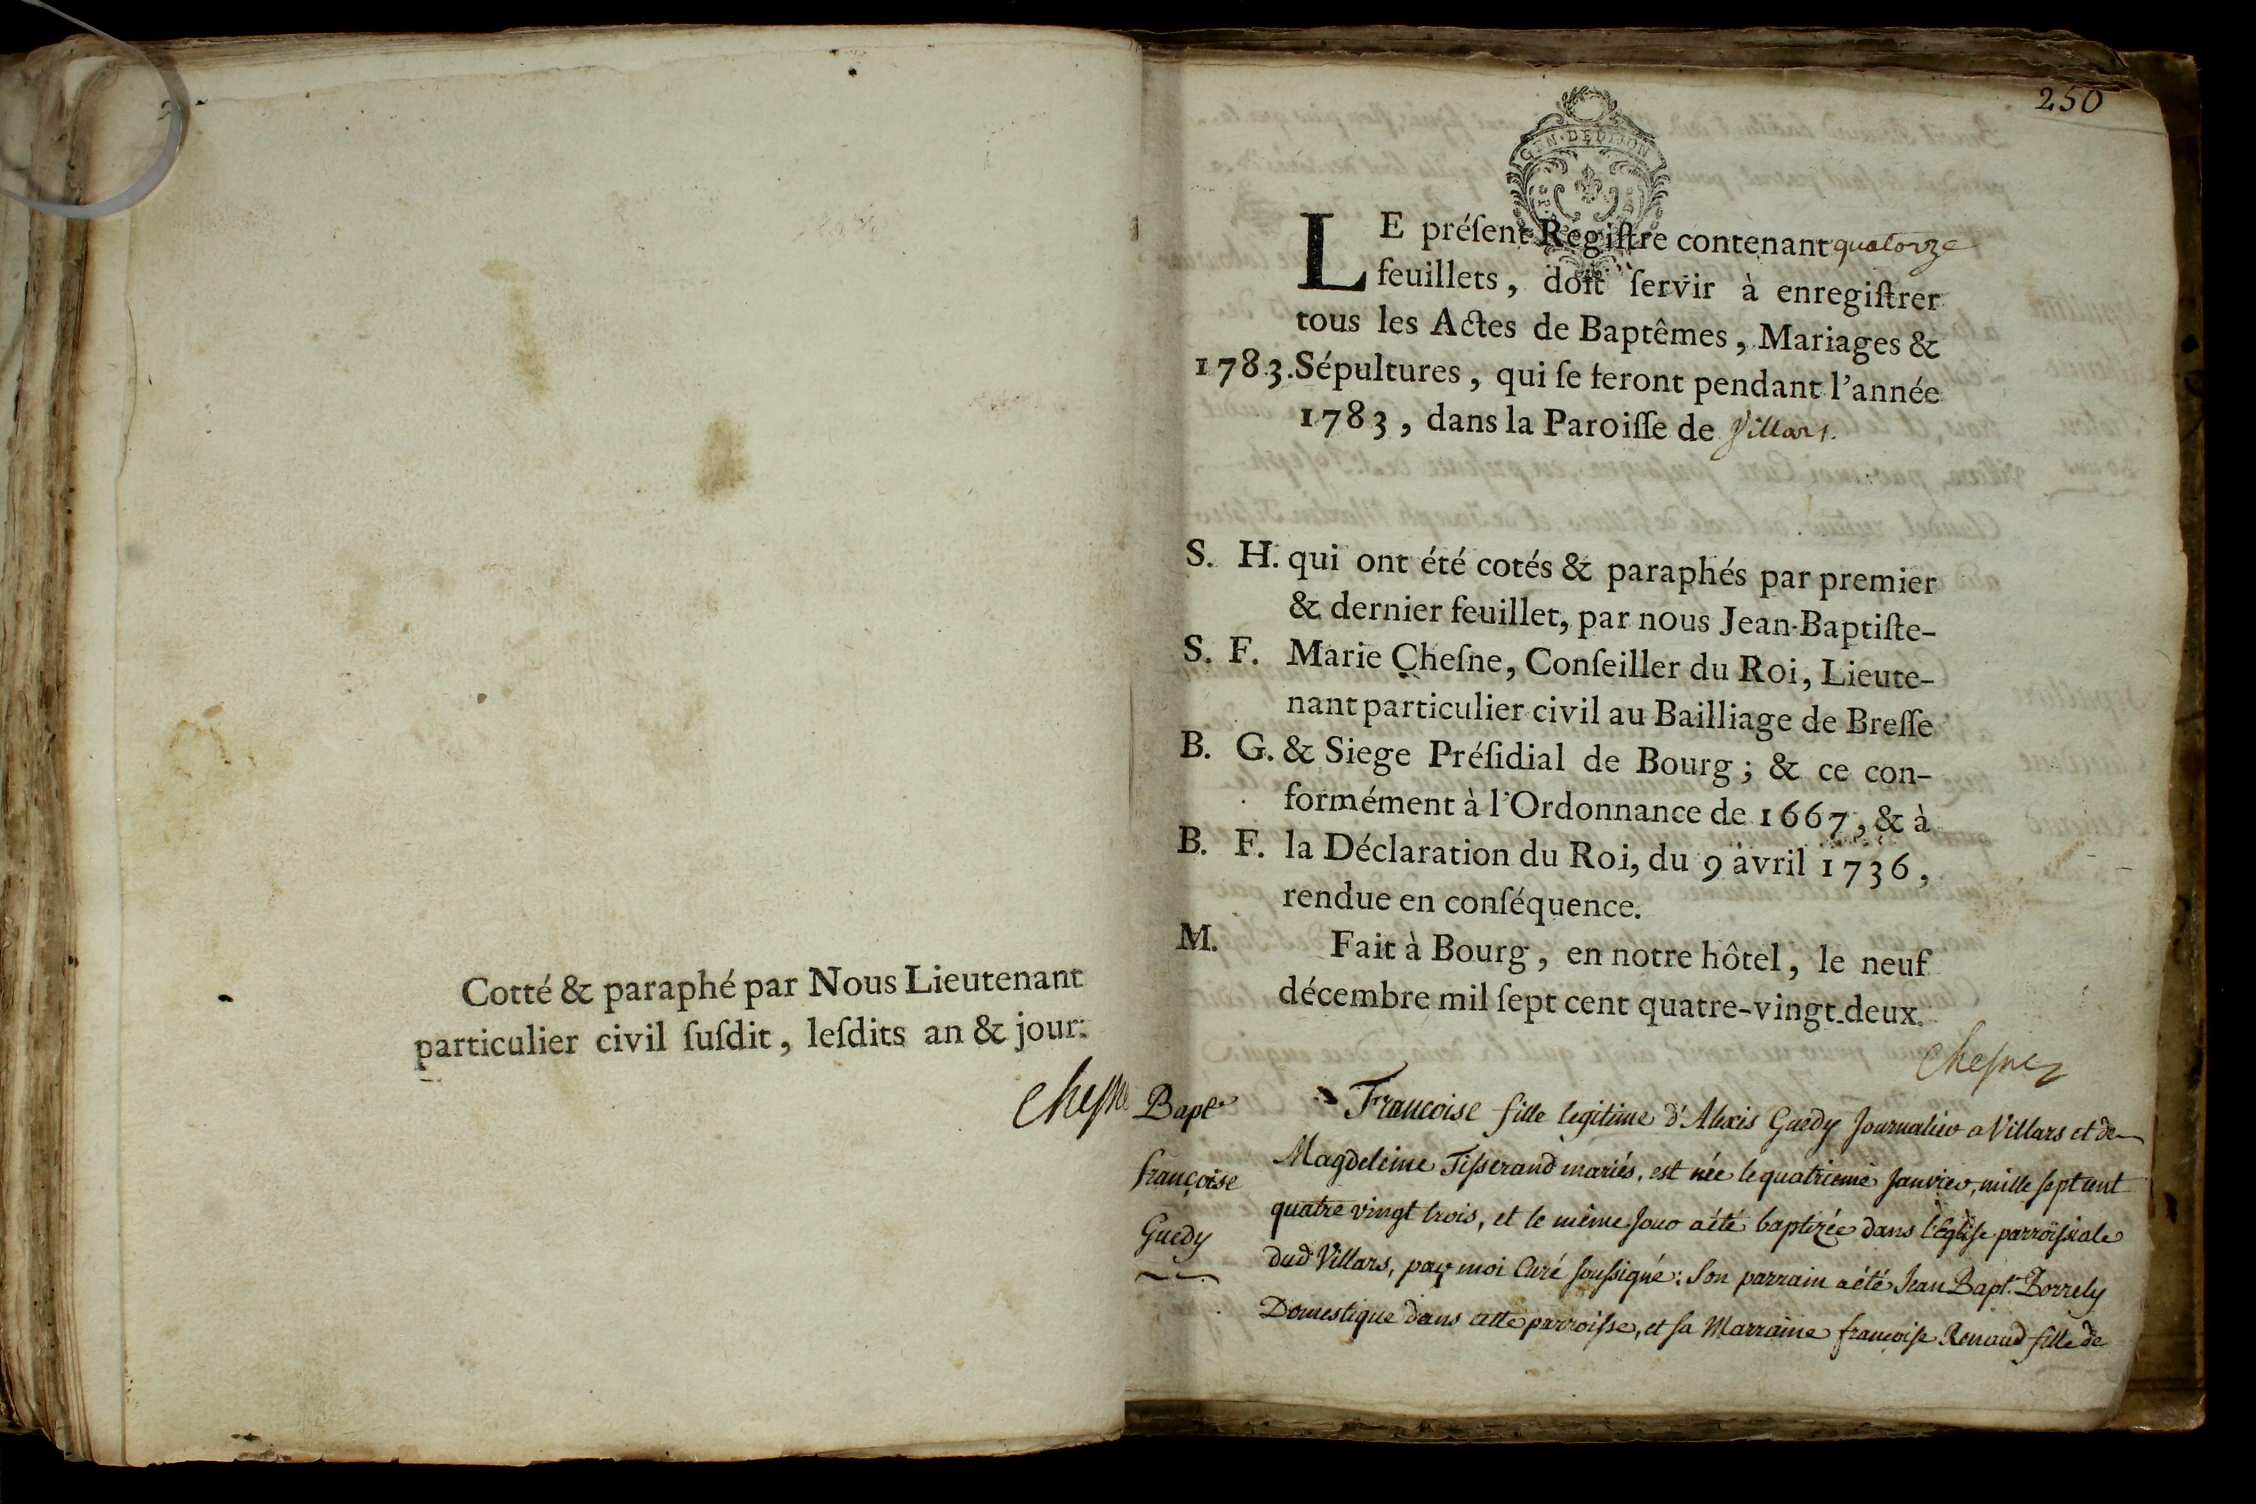 Cotté & paraphé par Nous Lieutenant
particulier civil ſuſdit, leſdits an & jour.
Chesne
250
GEN. DE DIJON
LE préſent Regiſtre contenant quatorze
feuillets, doit ſervir à enregiſtrer
tous les Actes de Baptêmes, Mariages &
1783. Sépultures, qui ſe feront pendant l'année
1783, dans la Paroiſſe de Villars.
S. H. qui ont été cotés & paraphés par premier
& dernier feuillet, par nous Jean-Baptiſte-
S. F. Marie Cheſne, Conſeiller du Roi, Lieute-
nant particulier civil au Bailliage de Breſſe
B. G. & Siege Préſidial de Bourg; & ce con-
formément à l'Ordonnance de 1667, & à
B. F. la Déclaration du Roi, du 9 avril 1736,
rendue en conſéquence.
M. Fait à Bourg, en notre hôtel, le neuf
décembre mil ſept cent quatre-vingt-deux.
Chesne
Bapt.
françoise
Guedy
Francoise fille legitime d'Alexis Guedy Journalier a Villars et de
Magdeleine Tisserand mariés, est née le quatrieme Janvier, mille sept cent
quatre vingt trois, et le même jour a été baptizée dans l'Eglise parroissiale
dud Villars, par moi Curé soussigné: Son parrain a été Jean Bapt. Borrely
Domestique dans cette parroisse, et sa Marraine francoise Renaud fille de